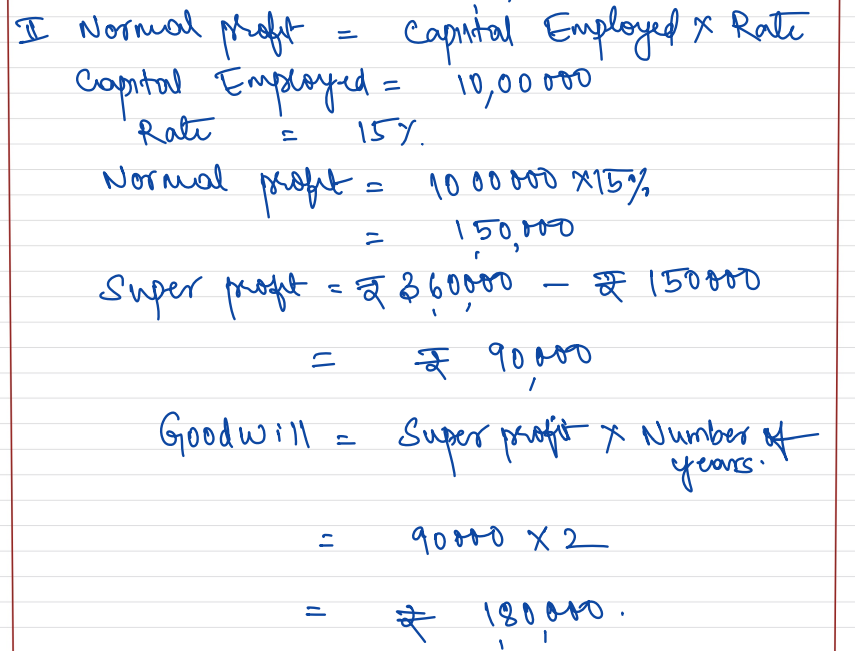 II Normal profit = Capital Employed × Rate
Capital Employed = 10,00000
Rate = 15%.
Normal profit = 1000000 ×15%
= 150,000
Super profit = ₹ 360,000 – ₹ 150000
= ₹ 90,000
Goodwill = Super profit × Number of
years.
= 90000 × 2
= ₹ 180,000.